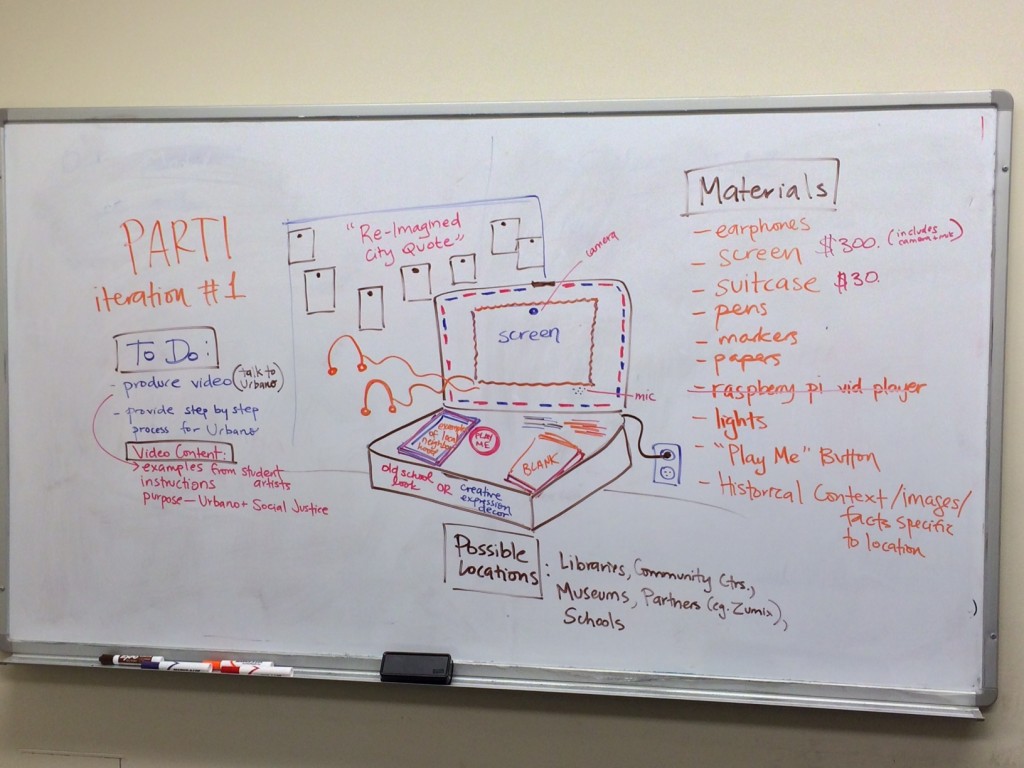 PART I
iteration #1
To Do:
- produce video (talk to
Urbano)
- provide step by step
process for Urbano
Video Content:
examples from student
artists
instructions
purpose — Urbano + Social Justice
"Re-Imagined
City Quote"
camera
screen
mic
PLAY
ME
BLANK
old school
look
OR
creative
expression
decor
Possible
Locations
: Libraries, Community Ctrs.,
Museums, Partners (eg. Zumix),
Schools
Materials
- earphones
- screen $300. (includes
camera + mic)
- suitcase $30.
- pens
- markers
- papers
- raspberry pi vid player
- lights
- "Play Me" Button
- Historical Context/images/
facts specific
to location